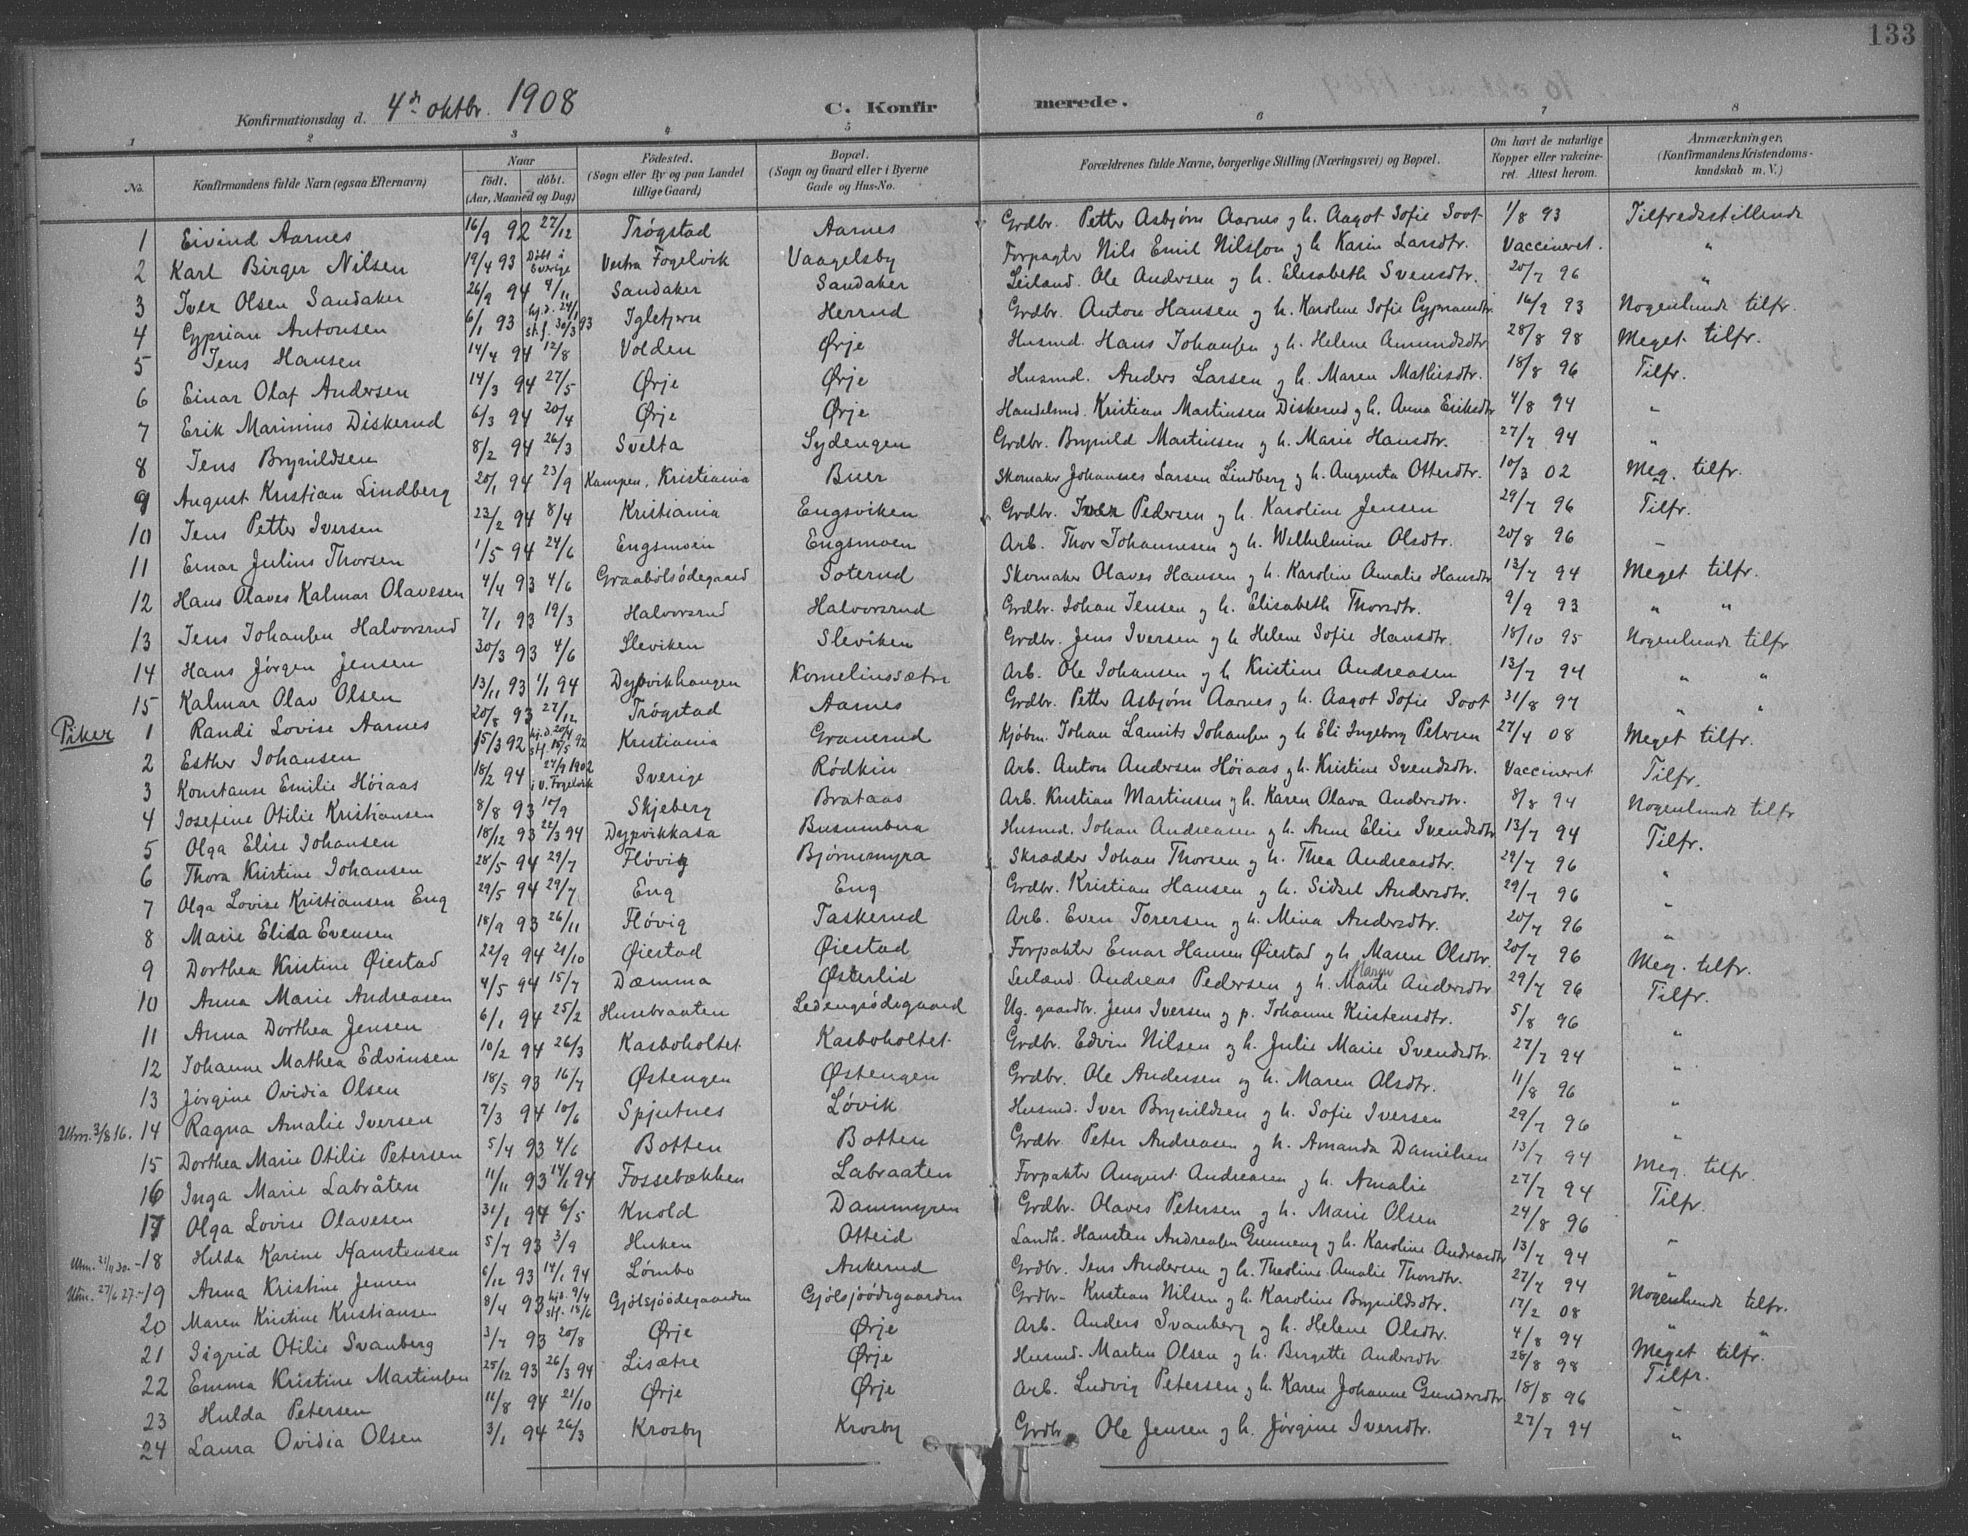 133
Konfirmationsdag d. 4de oktbr. 1908 C. Konfirmerede.
1 2 3 4 5 6 7 8
No. Konfirmandens fulde Navn (ogsaa Efternavn) Naar födt. döbt. (Aar, Maaned og Dag) Födested. (Sogn eller By og paa Landet tillige Gaard) Bopæl. (Sogn og Gaard eller i Byerne Gade og Hus-No. Forældrenes fulde Navne, borgerlige Stilling (Næringsvei) og Bopæl. Om havt de naturlige Kopper eller vakcineret. Attest herom. Anmærkninger. (Konfirmandens Kristendomskundskab m. V.)
1 Eivind Aarnes 16/9 92 27/12 Trøgstad Aarnes Grdbr. Petter Asbjørn Aarnes og h. Aagot Sofie Soot 1/8 93 Tilfredsstillende
2 Karl Birger Nilsen 19/4 93 Døbt i Sverige Vestra Fogelvik Vaagelsby Forpagter Nils Emil Nilsson og h Karin Larsdtr. Vaccineret. "
3 Iver Olsen Sandaker 26/9 94 4/11 Sandaker Sandaker Leiland. Ole Andersen og h. Elisabeth Svensdtr. 20/7 96 "
4 Cyprian Antonsen 6/1 93 hj.d. 24/1 st.f. 30/3 93 Igletjern Herrud Grdbr. Anton Hansen og h. Karoline Sofie Cypriandtr. 16/9 93 Nogenlunde tilfr.
5 Jens Hansen 14/4 94 12/8 Volden Ørje Husmd. Hans Johansen og h. Helene Amundsdtr 28/8 98 Meget tilfr.
6 Einar Olaf Andersen 14/3 94 27/5 Ørje Ørje Husmd. Anders Larsen og h. Maren Mathisdtr. 18/8 96 Tilfr.
7 Erik Marinius Diskerud 6/3 94 20/4 Ørje Ørje Handelsmd. Kristian Martinsen Diskerud og h. Anna Eriksdtr 4/8 94 "
8 Jens Brynildsen 8/2 94 26/3 Svelta Sydengen Grdbr. Brynild Martinsen og h. Marie Hansdtr. 27/7 94 "
9 August Kristian Lindberg 20/1 94 23/9 Kampen, Kristiania Buer Skomaker Johannes Larsen Lindberg og h. Augusta Ottersdtr. 10/3 02 Meg. tilfr.
10 Jens Petter Iversen 23/2 94 8/4 Kristiania Engsviken Grdbr. Iver Pedersen og h. Karoline Jensen 29/7 96 Tilfr.
11 Einar Julius Thorsen 1/5 94 24/6 Engsmoen Engsmoen Arb. Thor Johannesen og h. Wilhelmine Olsdtr. 20/8 96 "
12 Hans Olaves Kalmar Olavesen 4/4 93 4/6 Graabølsödegaard Toterud Skomaker Olaves Hansen og h. Karoline Amalie Hansdtr 13/7 94 Meget tilfr.
13 Jens Johansen Halvorsrud 7/1 93 19/3 Halvorsrud Halvorsrud Grdbr. Johan Jensen og h. Elisabeth Thorsdtr. 9/9 93 " "
14 Hans Jørgen Jensen 30/3 93 4/6 Sleviken Sleviken Grdbr. Jens Iversen og h Helene Sofie Hansdtr. 18/10 95 Nogenlunde tilfr
15 Kalmar Olav Olsen 13/11 93 1/1 94 Dypvikhaugen Kornelinssætre Arb. Ole Johansen og h Kristine Andreasen 13/7 94 " "
Piker 1 Randi Lovise Aarnes 20/8 93 27/12 Trøgstad Aarnes Grdbr. Petter Asbjørn Aarnes og h. Aagot Sofie Soot 31/8 97 " "
2 Esther Johansen 15/3 92 hj.d. 20/4 stf. 15/5 92 Kristiania Granerud Kjøbm. Johan Lauritz Johansen og h Eli Ingeborg Petersen 27/4 08 Meget tilfr.
3 Konstanse Emilie Höiaas 18/2 94 27/9 1902 i V. Fogelvik Sverige Rödkin Arb. Anton Andersen Höiaas og h. Kristine Svendsdtr. Vaccineret Tilfr.
4 Josefine Otilie Kristiansen 8/8 93 10/9 Skjeberg Brataas Arb. Kristian Martinsen og h. Karen Olava Andersdtr. 8/8 94 Nogenlunde tilfr
5 Olga Elise Johansen 18/12 93 22/3 94 Dypvikkasa Busumbua Husmd. Johan Andreasen og h. Anne Elise Svendsdtr 13/7 94 Tilfr.
6 Thora Kristine Johansen 28/5 94 29/7 Fløvig Bjørnemyra Skrædder Johan Thorsen og h. Thea Andreasdtr. 29/7 96 "
7 Olga Lovise Kristiansen Eng 29/5 94 29/7 Eng Eng Grdbr. Kristian Hansen og h. Sidsel Andersdtr. 29/7 96 "
8 Marie Elida Evensen 18/9 93 26/11 Fløvig Taskerud Arb. Even Torersen og h. Mina Andersdtr. 20/7 96 "
9 Dorthea Kristine Øiestad 22/9 94 21/10 Øiestad Øiestad Forpakter Einar Hansen Øiestad og h. Maren Olsdtr. 20/7 96 Meg. tilfr.
10 Anna Marie Andreasen 4/5 94 15/7 Dæmma Østerlid Leilænd. Andreas Pedersen og h. Marte Maren Andersdtr 29/7 96 Tilfr.
11 Anna Dorthea Jensen 6/1 94 25/2 Hunbraaten Ledengsödegaard Ug. gaardbr. Jens Iversen og p. Johanne Kristensdtr. 5/8 96 "
12 Johanne Mathea Edvinsen 10/2 94 26/3 Kasboholtet Kasboholtet Grdbr. Edvin Nilsen og h. Julie Marie Svendsdtr. 27/7 94 "
13 Jørgine Ovidia Olsen 18/5 93 16/7 Østengen Østengen Grdbr. Ole Andersen og h. Maren Olsdtr. 11/8 96 "
Utm. 3/8 16. 14 Ragna Amalie Iversen 7/3 94 10/6 Spjutnes Løvik Husmd. Iver Brynildsen og h. Sofie Iversen 29/7 96 "
15 Dorthea Marie Otilie Petersen 5/4 93 4/6 Botten Botten Grdbr. Peter Andreasen og h. Amanda Danielsen 13/7 94 Meg. tilfr.
16 Inga Marie Labråten 11/11 93 14/1 94 Fossebækken Labraaten Forpakter August Andreasen og h. Amalie 27/7 94 Tilfr.
17 Olga Lovise Olavesen 31/1 94 6/5 Knold Dammyren Grdbr. Olaves Petersen og h. Marie Olsen 24/8 96
Utm. 21/11 30. -18 Hilda Karine Hanstensen 5/7 93 3/9 Huken Otteid Landh. Hansten Andreasen Gunneng og h. Karoline Andreasdtr 13/7 94 "
Utm. 27/6 27. -19 Anna Kristine Jensen 6/12 93 14/1 94 Lømbo Ankerud Grdbr. Jens Andersen og h. Theoline Amalie Thorsdtr. 27/7 94 "
20 Maren Kristine Kristiansen 8/4 93 hjd. 9/4 stf. 18/6 Gjølsjöödegaarden Gjölsjöödegaarden Grdbr. Kristian Nilsen og h. Karoline Brynildsdtr. 17/2 08 Nogenlunde tilfr.
21 Sigrid Otilie Svanberg 3/7 93 20/8 Ørje Ørje Arb. Anders Svanberg og h. Helene Olsdtr. 4/8 94 " "
22 Emma Kristine Martinsen 25/12 93 26/3 94 Lisætre Ørje Husmd. Marten Olsen og h. Birgitte Andersdtr 28/8 98 Meget tilfr.
23 Hulda Petersen 11/8 94 21/10 Ørje Ørje Arb. Ludvig Petersen og h. Karen Johanne Gundersdtr 18/8 96 Tilfr.
24 Laura Ovidia Olsen 3/1 94 26/3 Krosby Krosby Grdbr. Ole Jensen og h. Jørgine Iversdtr. 27/7 94 "